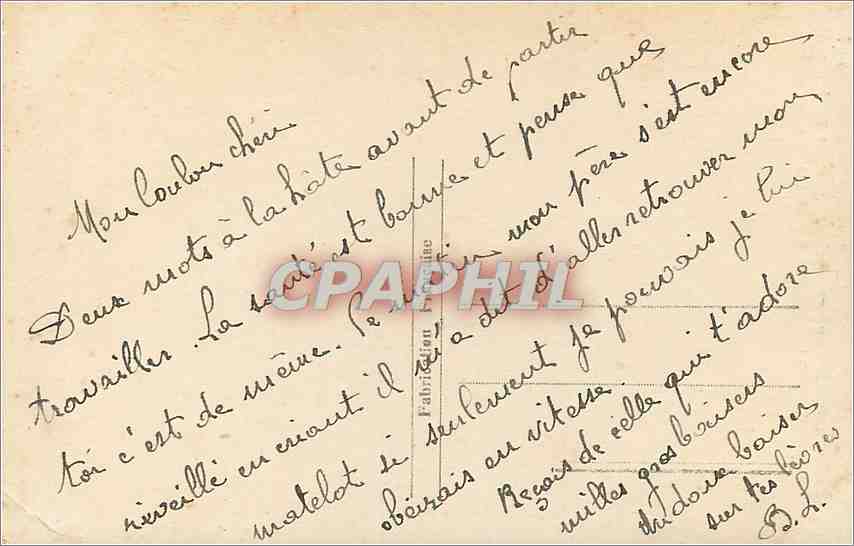 Mon loulou chéri
Deux mots à la hâte avant de partir
travailler. La santé est bonne et pense que
toi c'est de même. Ce matin mon père s'est encore
réveillé en criant il m'a dit d'aller retrouver mon
matelot si seulement je pouvais je lui
obéirais en vitesse.
Reçois de celle qui t'adore
milles gros baisers
un doux baiser
sur tes lèvres
B. L.
Fabrication Française
CPAPHIL